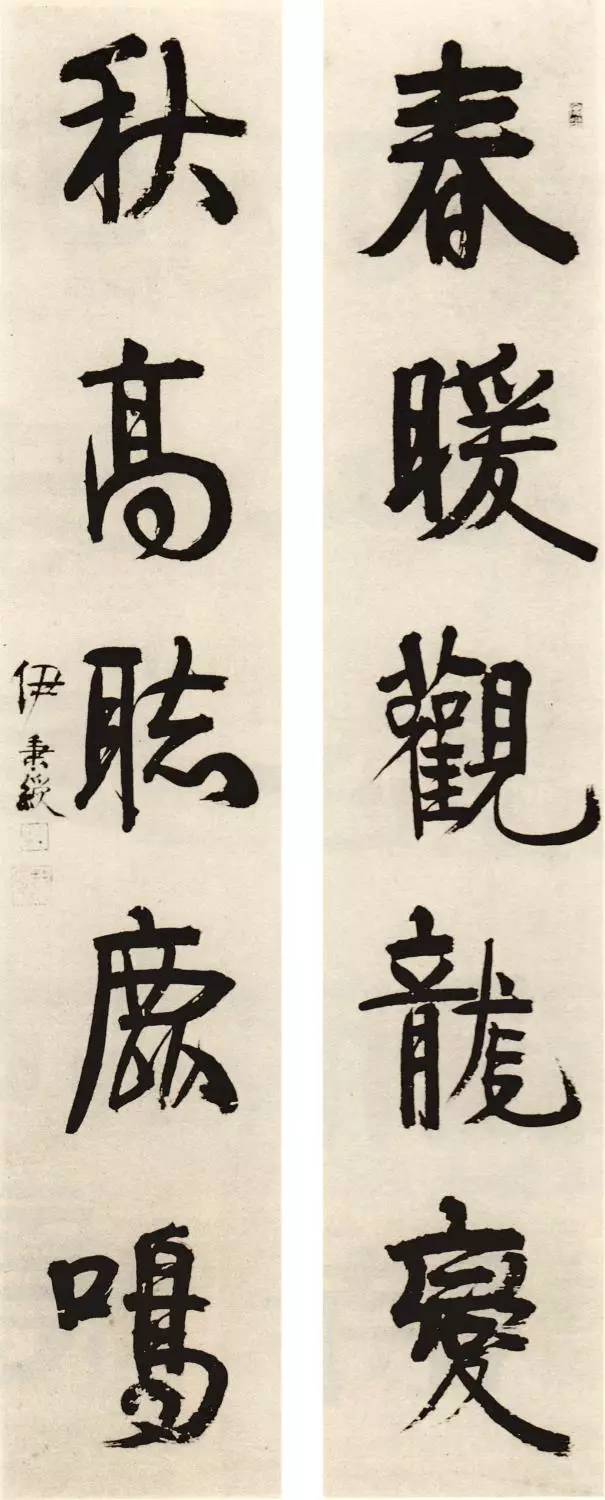 春暖觀龍變
秋高聴鹿鳴
伊秉綬